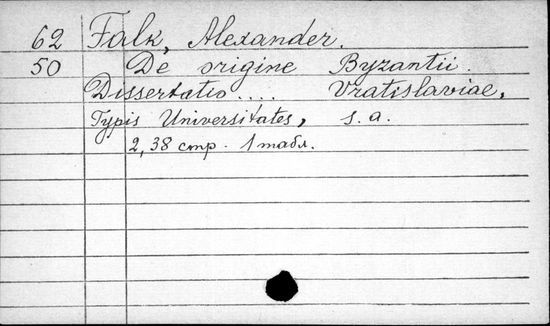 62 Falk, Alexander.
50 De origine Byzantii.
Dissertatio.... Vratislaviae,
Typis Universitates, s. a.
2, 38 стр. 1 табл.